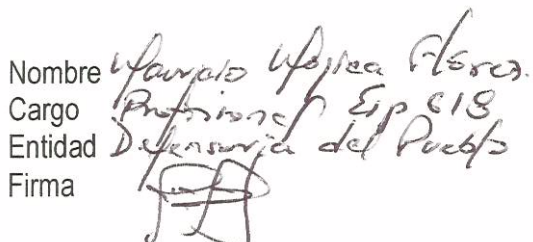 Nombre Mauricio Mojica Flórez.
Cargo Profesional Esp 618
Entidad Defensoría del Pueblo
Firma